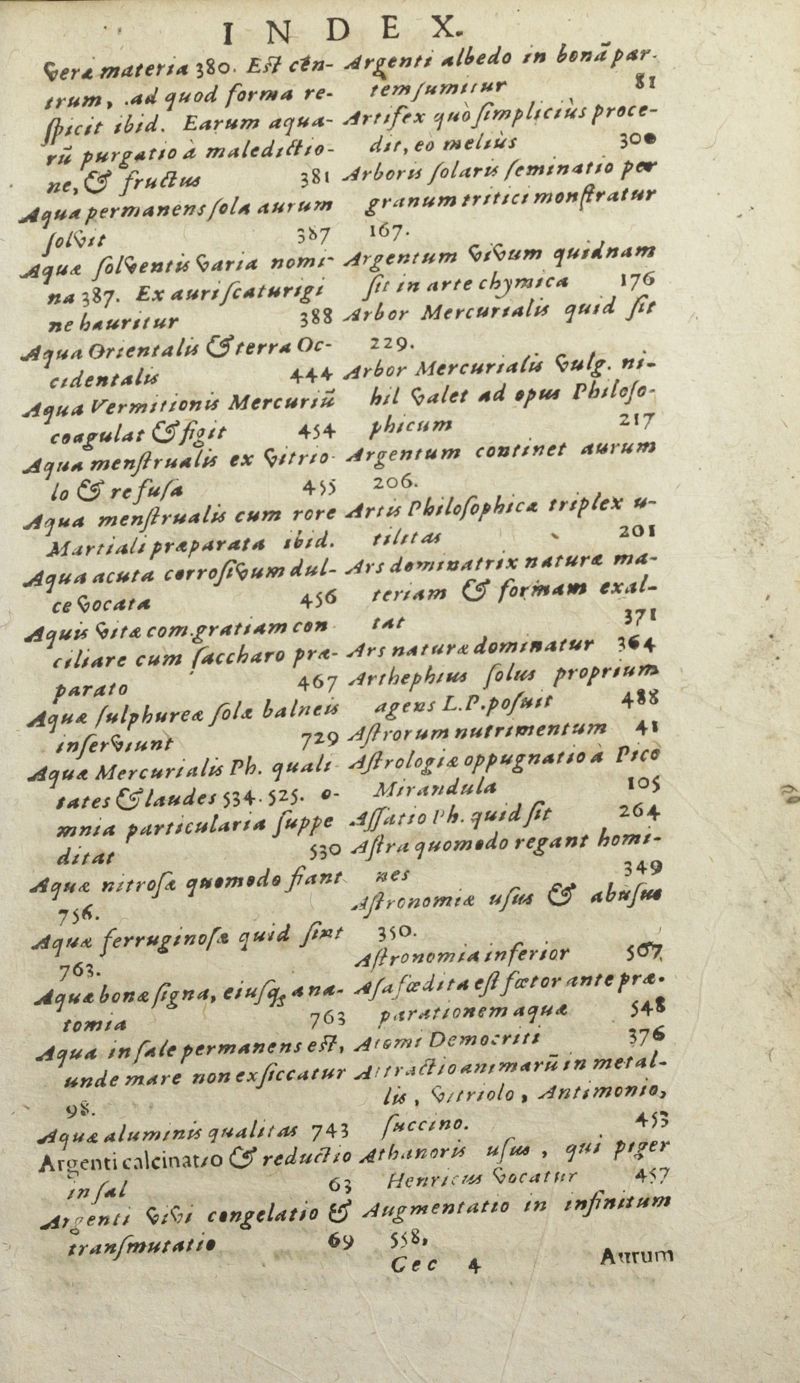 INDEX.
Vera materia 380. Est cēn-
trum, ad quod forma re-
spicit ibid. Earum aqua-
rū purgatio à maledictio-
ne, & fructus 381
Aqua permanens sola aurum
solvit 387
Aquæ solventis varia nomi-
na 387. Ex auri scaturigi
ne hauritur 388
Aqua Orientalis & terra Oc-
cidentalis 444
Aqua Vermitionis Mercuriū
coagulat & figit 454
Aqua menstrualis ex vitrio-
lo & refusa 455
Aqua menstrualis cum rore
Martiali præparata ibid.
Aqua acuta corrosivum dul-
ce vocata 456
Aquis vitæ com. gratiam con
ciliare cum saccharo præ-
parato 467
Aquæ sulphureæ solæ balneis
inserviunt 729
Aquæ Mercurialis Ph. quali-
tates & laudes 534. 525. o-
mnia particularia suppe
ditat 530
Aquæ nitrosæ quomodo fiant
756.
Aquæ ferruginosæ quid sint
763.
Aquæ bonæ signa, eiusq; ana-
tomia 763
Aqua in sale permanens est,
unde mare non exsiccatur
98.
Aquæ aluminis qualitas 743
Argenti calcinatio & reductio
in sal 63
Argenti vivi congelatio &
transmutatio 69
Argenti albedo in bonā par-
tem sumitur 81
Artifex quò simpliciùs proce-
dit, eò meliùs 300
Arboris solaris seminatio per
granum tritici monstratur
167.
Argentum vivum quidnam
sit in arte chymica 176
Arbor Mercurialis quid sit
229.
Arbor Mercurialis vulg. ni-
hil valet ad opus Philoso-
phicum 217
Argentum continet aurum
206.
Artis Philosophicæ triplex u-
tilitas 201
Ars dominatrix naturæ ma-
teriam & formam exal-
tat 371
Ars naturæ dominatur 364
Arthephius solus proprium
agens L.P. posuit 488
Astrorum nutrimentum 41
Astrologiæ oppugnatio à Pico
Mirandula 105
Assatio Ph. quid sit 264
Astra quomodo regant homi-
nes 349
Astronomiæ usus & abusus
350.
Astronomia inferior 567
Asa fœdita est fœtor ante præ-
parationem aquæ 548
Atomi Democriti 376
Attractio animarū in metal-
lis, vitriolo, Antimonio,
succino. 453
Athanoris usus, qui piger
Henricus vocatur 457
Augmentatio in infinitum
558,
Ccc 4 Aurum